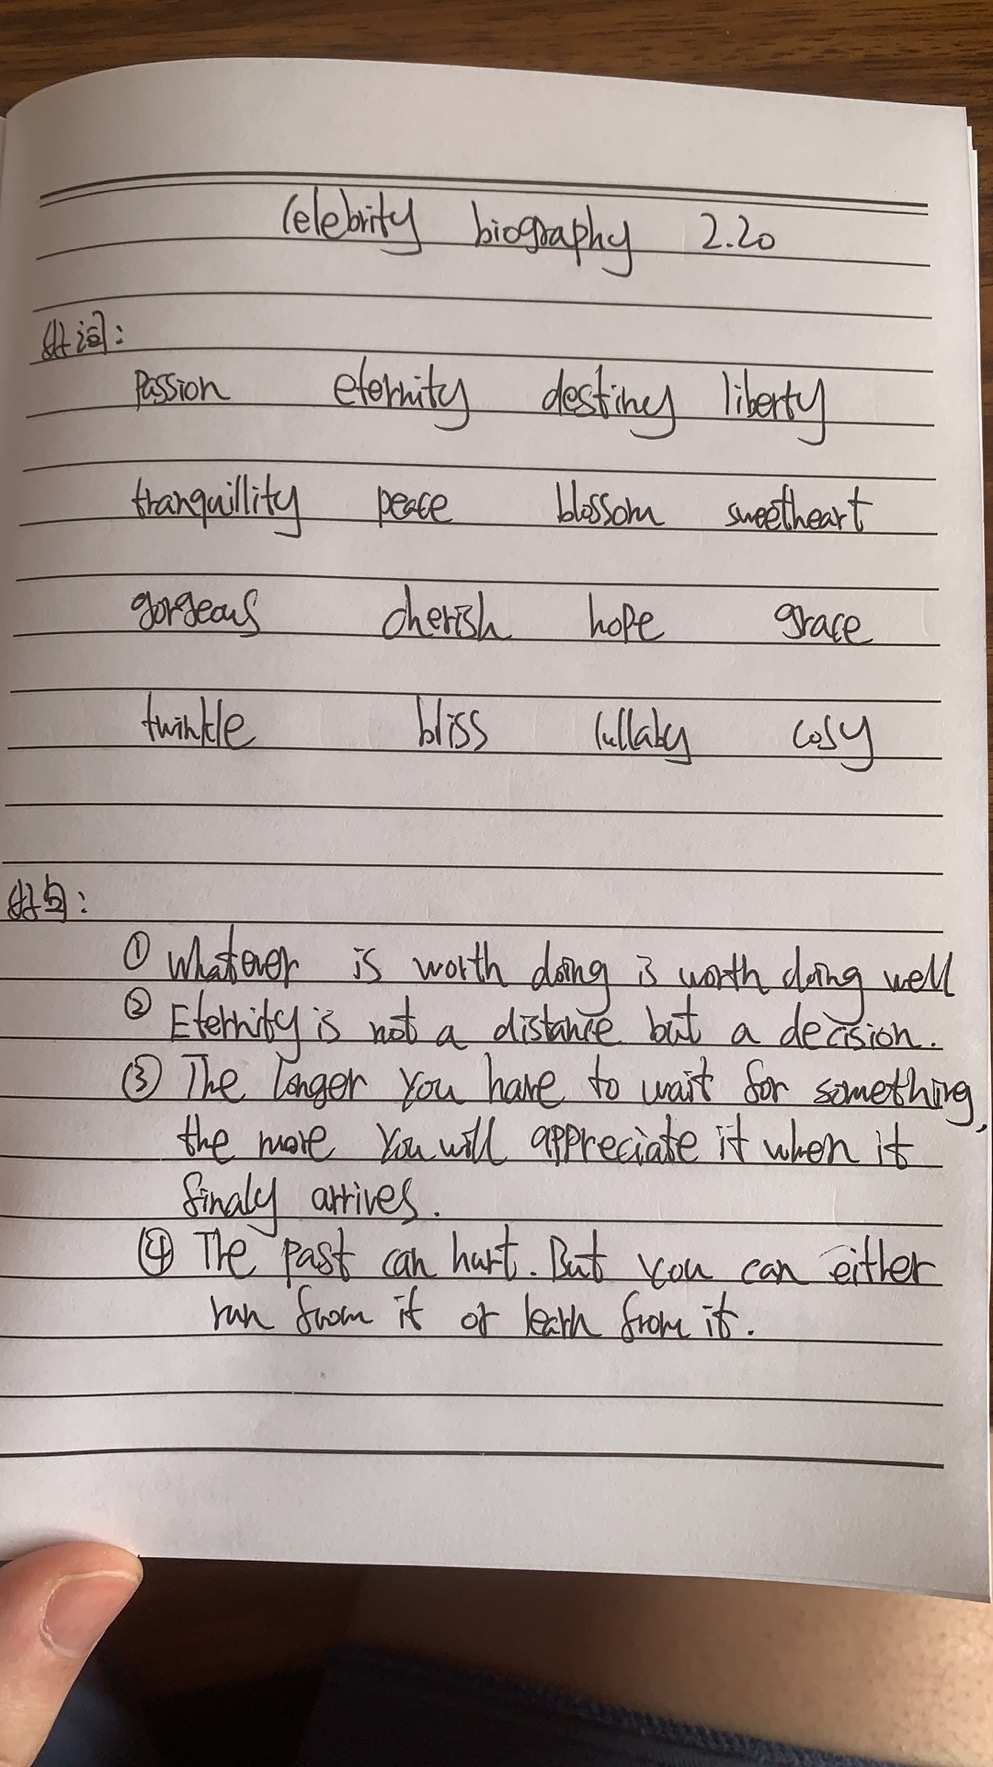 Celebrity biography 2.20
好词:
Passion eternity destiny liberty
tranquillity peace blossom sweetheart
gorgeous cherish hope grace
twinkle bliss lullaby cosy
好句:
① Whatever is worth doing is worth doing well
② Eternity is not a distance but a decision.
③ The longer you have to wait for something,
the more you will appreciate it when it
finaly arrives.
④ The past can hurt. But you can either
run from it or learn from it.